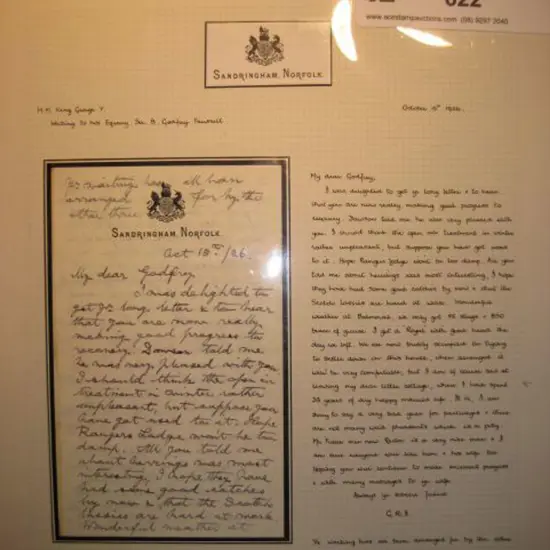 622
www.acestampauctions.com (08) 9297 2040
SANDRINGHAM, NORFOLK.
H.M. King George V.
Writing to his Equerry Sir A. Godfrey
October 1926.
for by the
other three
SANDRINGHAM, NORFOLK.
Oct 18th/26.
My dear Godfrey
I was delighted to
get yr long letter & to hear
that you are now really
making good progress to
recovery. Dawson told me
he was very pleased with you
I should think the open air
treatment in winter rather
unpleasant, but suppose you
have got used to it. I hope
Rangers Lodge won't be too
damp. All you told me
about herrings was most
interesting, I hope they have
had some good catches
by now & that the Scotch
lassies are hard at work
Wonderful weather at
My dear Godfrey,
I was delighted to get yr long letter & to hear
that you are now really making good progress to
recovery. Dawson told me he was very pleased with
you. I should think the open air treatment in winter
rather unpleasant, but suppose you have got used
to it. I hope Rangers Lodge won't be too damp. All you
told me about herrings was most interesting, I hope
they have had some good catches by now & that the
Scotch lassies are hard at work. Wonderful
weather at Balmoral, we only got 42 stags & 800
brace of grouse. I got a Royal with good head the
day we left. We are most busily occupied in trying
to settle down in this house, when arranged it
will be very comfortable, but I am of course sad at
leaving my dear little cottage, where I have spent
33 years of my happy married life. It is, I am
sorry to say a very bad year for partridges & there
are not many wild pheasants which is a pity.
new Rector is a very nice man & I
am also
Hoping you will continue to make increased progress
& with many messages to yr wife.
Always yr sincere friend
G.R.I.
Yr waiting has all been arranged for by the other